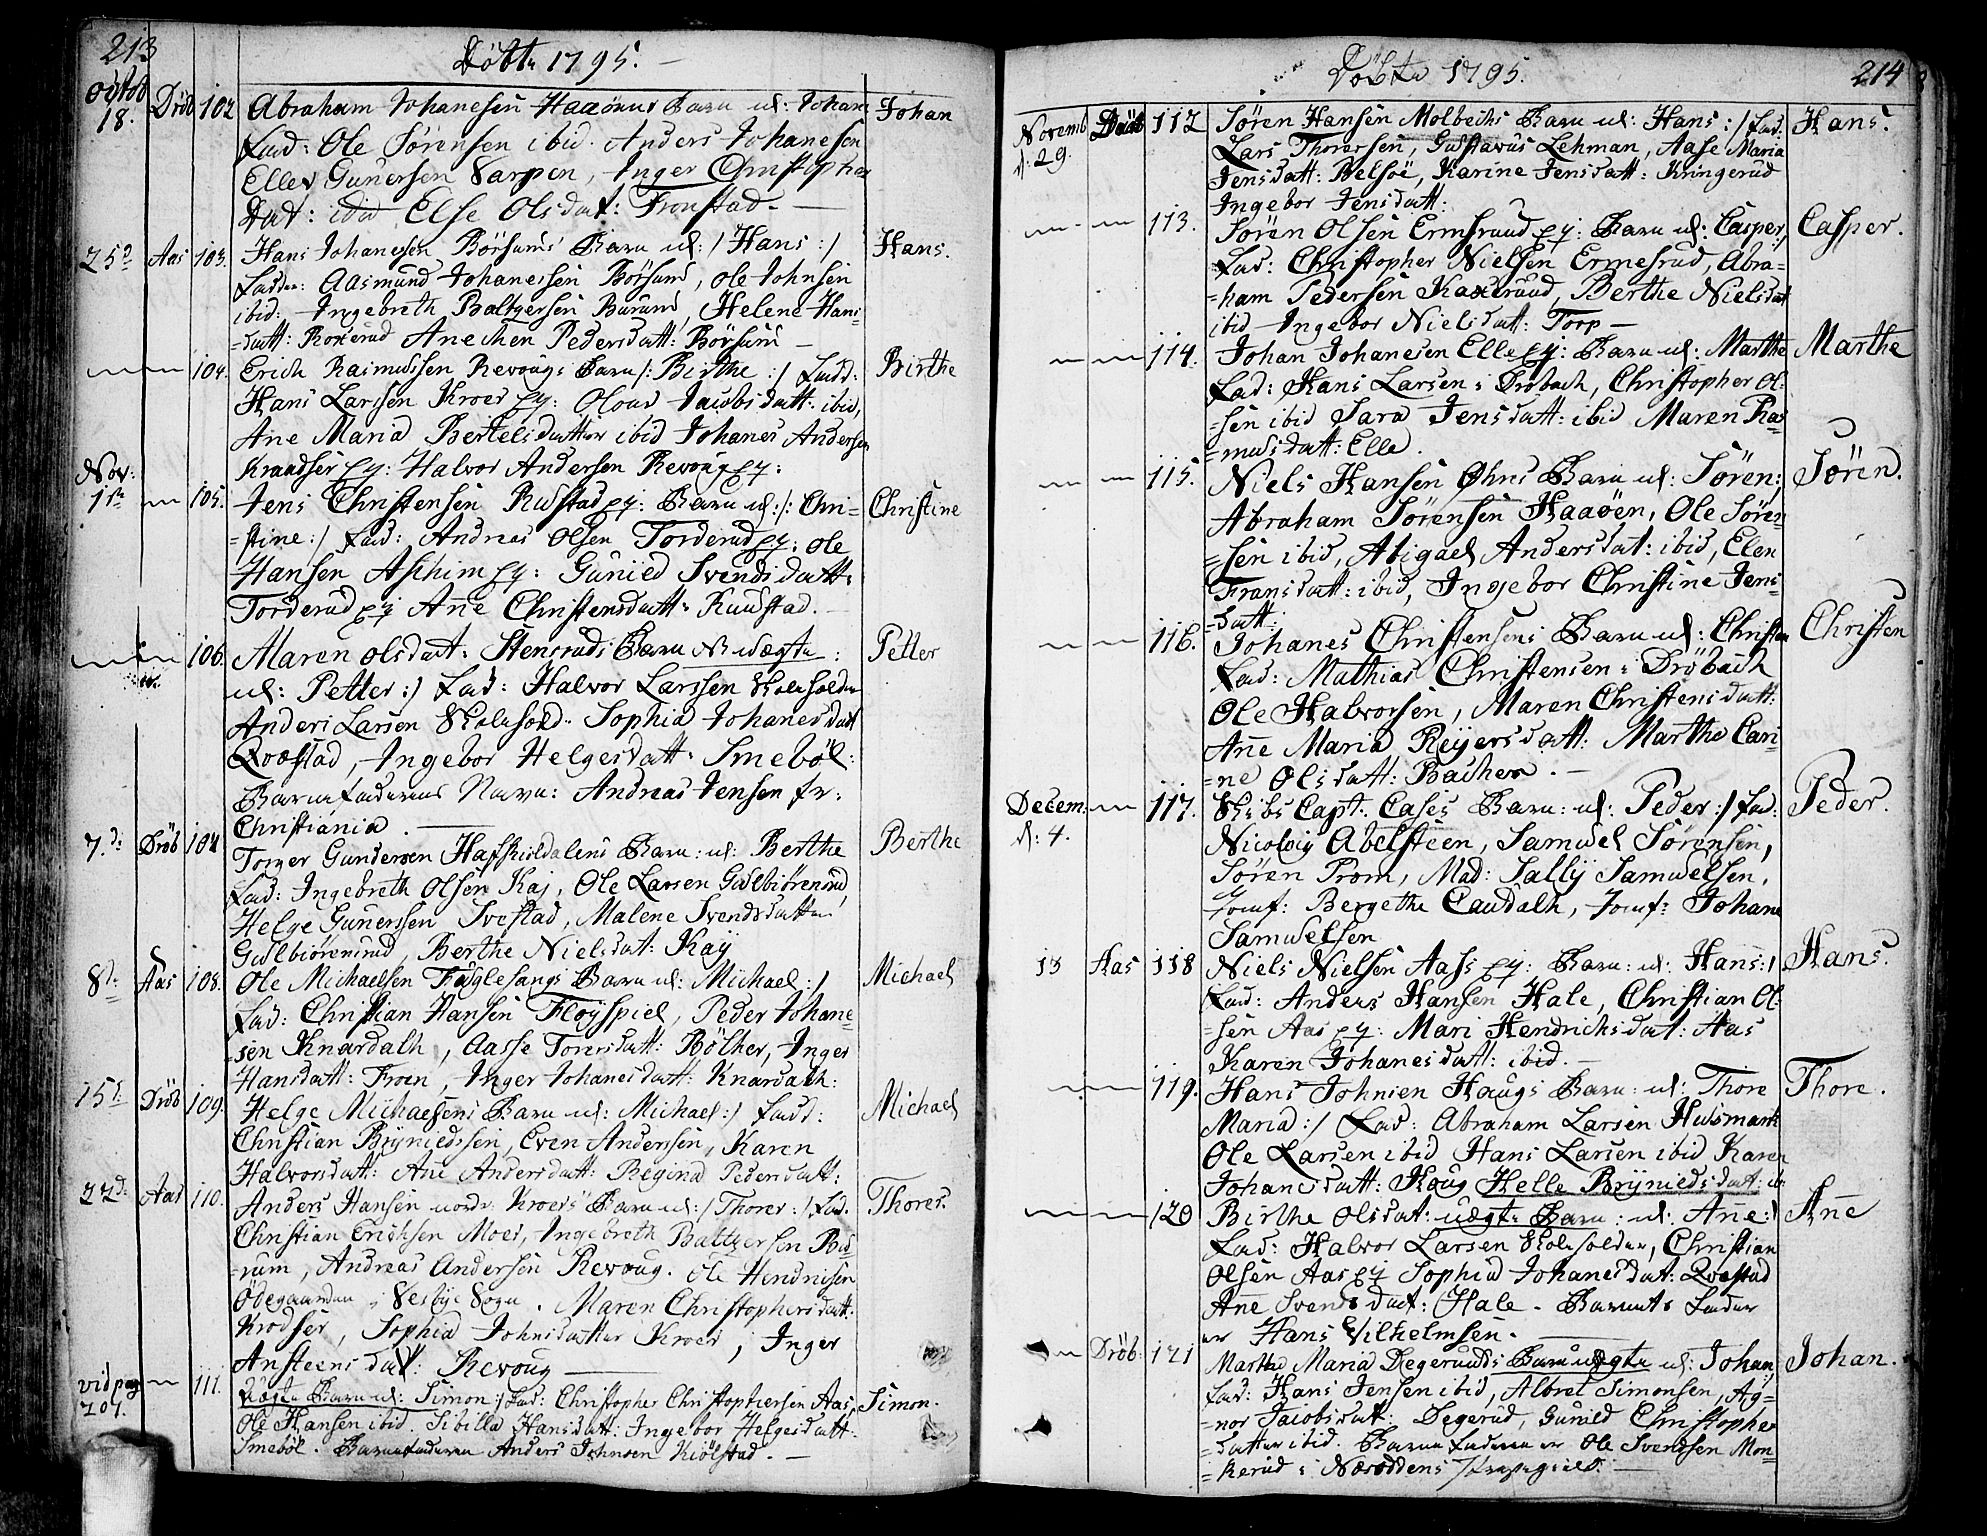 213
Döbte 1795.
Octob
18. Dröb 102 Abraham Johanesen Haaöens Barn n: Johan Johan
Fad: Ole Sörensen ibid. Anders Johanesen
Elle, Gunersen Sarpen, Inger Christopher
Dat: ibid Else Olsdat: Fronstad.
25d Aas 103. Hans Johanesen Börsums Barn n: /Hans:/ Hans.
Fadd: Aasmund Johanesen Börsum, Ole Johnsen
ibid: Ingebreth Baltzersen Burum, Helene Hans
=datt: Anechen Pedersdatt: Börsum
104. Erich Rasmussen Revougs Barn /: Birthe :/ Fadd: Birthe
Hans Larssen Kroer ey: Olous Jacobsdatt: ibid,
Ane Maria Bertelsdatter ibid Johanes Andersen
Kraadser ey: Halvor Andersen Revoug ey:
Nov:
1ste 105. Jens Christensen Rustad ey: Barn n: /: Chri= Christine
=stine :/ Fad: Andreas Olsen Torderud ey: Ole
Hansen Aschim ey: Guniled Svendsdatt:
Torderud ey Ane Christensdatt: Ruustad.
106. Maren Olsdat: Stensruds Barn uægte Petter
n: Petter :/ Fad: Halvor Larssen
Anders Larsen Sophia Johanesdatt
Qvæstad, Ingebor Helgesdatt: Smeböl:
Barnefaderens Navn: Andreas Jensen fr:
Christiania.
7.d: Dröb 107 Torger Gundersen Barn: n: Berthe Berthe
Fad: Ingebreth Olsen Kaj, Ole Larsen Gulbiörensrud
Helge Gunerssen Svestad, Malene Svendsdatter
Gulbiörensrud, Berthe Nielsdat: Kaÿ
8d: Aas 108. Ole Michaelsen Fuglesangs Barn n: Michael :/ Michael
Fad: Christian Hansen Floÿspiel, Peder Johane=
=sen Knardalh, Aasse Toresdatt: Bölher, Inger
Hansdatt: Froen, Inger Johanesdatt: Knardalh:
15d: Dröb 109. Helge Michaelsens Barn n: Michael :/ Fadd: Michael
Christian Brÿnildssen, Even Andersen, Karen
Halvorsdatt: Ane Andersdatt: Regina Pedersdatt:
22d: Aas 110. Anders Hansen nordr Kroers Barn n: /Thorer :/ Fad. Thorer.
Christian Erichsen Moer, Ingebreth Baltzersen Bu=
=rum, Andreas Andersen Revoug. Ole Hendrichsen
Ödegaarden i Vesbÿe Sogn. Maren Christophersdatt:
Krodser, Sophia Johnsdatter Kroer, Inger
Ansteensdat: Revoug
vid pag 207. 111. Uægte Barn n: Simon :/ Fad: Christopher Christophersen Aas, Simon.
Ole Hansen ibid. Sibilla Hansdatt: Ingebor Helgesdatt:
Smeböl. Barnefaderen Anders Johnsen Kiölstad.
Döbte 1795.
214
Novemb d: 29. Dröb 112 Sören Hansen Molbechs Barn n: Hans :/ Fad. Hans.
Lars Thorersen, Gustavus Lehman, Aase Maria
Jensdatt: Belsöe, Karine Jensdatt: Kringerud
Ingebor Jensdatt:
113. Sören Olsen Ermesrud ey: Barn n: Casper :/ Casper.
Fad: Christopher Nielsen Ermesrud, Abra=
=ham Pedersen Kaxerud, Berthe Nielsdat
ibid Ingebor Nielsdatt: Torp
114. Johan Johanesen Elle ey: Barn n: Marthe Marthe
Fad: Hans Larsen i Dröbach, Christopher Ol=
=sen ibid Sara Jensdatt: ibid Maren Ras
=musdatt: Elle.
115. Niels Hansen Öhrs Barn n: Sören: Sören.
Abraham Sörensen Haaöen, Ole Sören=
=sen ibid, Abigael Andersdat: ibid, Elen
Fransdatt: ibid, Ingebor Christine Jens
=datt:
116. Johanes Christensens Barn n: Christen Christen
Fad: Mathias Christensen i Dröbach
Ole Halvorsen, Maren Christensdatt:
Ane Maria Reÿersdatt: Marthe Cari=
=ne Olsdatt: Bachen.
Decem: d: 4. 117. Skibs Capt. Cases Barn: n: Peder :/ Fad: Peder.
Nicolaÿ Abelsteen, Samuel Sörensen,
Sören Prom, Mad: Sallÿ Samuelsen,
Jomf: Bergethe Caudalh, Jomf: Johane
Samuelsen
13 Aas 118 Niels Nielsen Aass ey: Barn: n: Hans :/ Hans.
Fad: Anders Hansen Hale, Christian Ol=
=sen Aas ey: Mari Hendrichsdat: Aas
Karen Johanesdatt: ibid.
119. Hans Johnsen Hougs Barn: n: Thore Thore.
Maria :/ Fad: Abraham Larsen Husmark
Ole Larsen ibid Hans Larsen ibid Karen
Johanesdatt: Houg Helle Brÿnieldsdatt: ib.
120 Birthe Olsdat: uægte Barn: n: Ane :/ Ane
Fad: Halvor Larsen Christian
Olsen Aas ey Sophia Johanesdat: Qvæstad
Ane Svendsdat: Hale. Barnets Fader
er Hans Vilhelmsen.
Dröb: 121 Marthe Maria Degeruuds Barn uægte n: Johan: Johan.
Fad: Hans Jensen ibid, Albret Simonsen, Ag=
=nor Jacobsdat: Degerud, Gunild Christopher
=datter ibid. Barnefaderen er Ole Svendsen Mon=
=kerud i Næsoddens